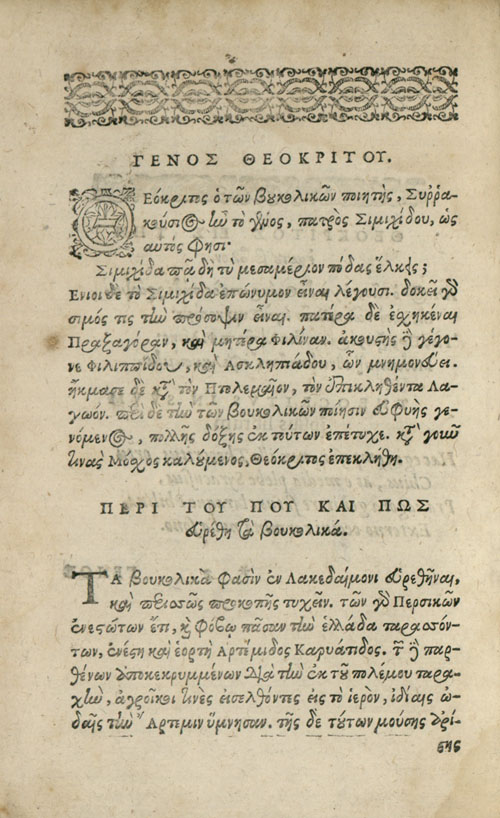 ΓΕΝΟΣ ΘΕΟΚΡΙΤΟΥ.
Θεόκριτος ὁ τῶν βουκολικῶν ποιητὴς, Συῤῥα-
κούσιος ἦν τὸ γένος, πατρὸς Σιμιχίδου, ὡς
αὐτός φησι·
Σιμιχίδα πᾶ δὴ τὺ μεσαμέριον πόδας ἕλκεις;
Ενιοι δὲ τὸ Σιμιχίδα ἐπώνυμον εἶναι λέγουσι. δοκεῖ γὸ
σιμός τις τὴν πρόσοψιν εἶναι. πατέρα δὲ ἐσχηκέναι
Πραξαγόραν, καὶ μητέρα Φιλίναν. ἀκουστὴς δὲ γέγο-
νε Φιλιππίδου, καὶ Ασκληπιάδου, ὧν μνημονεύει.
ἤκμασε δὲ κατὰ τὸν Πτολεμαῖον, τὸν ἐπικληθέντα Λα-
γωόν. περὶ δὲ τὴν τῶν βουκολικῶν ποίησιν εὐφυὴς γε-
νόμενος, πολλῆς δόξης ἐπέτυχε. κατὰ γοῦν
τινὰς Μόσχος καλούμενος, Θεόκριτος ἐπεκλήθη.
ΠΕΡΙ ΤΟΥ ΠΟΥ ΚΑΙ ΠΩΣ
εὑρέθη τὰ βουκολικά.
ΤΑ βουκολικά φασὶν ἐν Λακεδαίμονι εὑρεθῆναι,
καὶ περισσῶς προκοπῆς τυχεῖν. τῶν γὸ Περσικῶν
ἐνεστώτων ἔτι, καὶ φόβῳ πᾶσαν τὴν ἑλλάδα ταρασσόν-
των, ἐνέστη καὶ ἑορτὴ Αρτέμιδος Καρυάτιδος. τῶν δὲ παρ-
θένων ἀποκεκρυμμένων διὰ τὴν ἐκ τοῦ πολέμου ταρα-
χὴν, ἀγροῖκοι τινὲς εἰσελθόντες εἰς τὸ ἱερὸν, ἰδίαις ᾠ-
δαῖς τὴν Αρτεμιν ὕμνησαν. τῆς δὲ τούτων μούσης